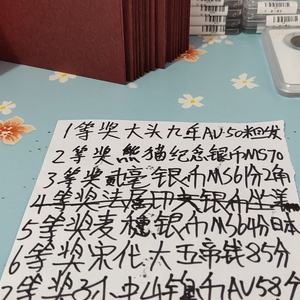 1等奖大头九年AU50粗发
2等奖熊猫纪念银币MS70
3等奖贰毫银币MS61分2角
4等奖法属印支银币坐洋
5等奖麦穗银币MS64分日本
6等奖宋代大五帝钱85分
7等奖3小中4银币AU58分